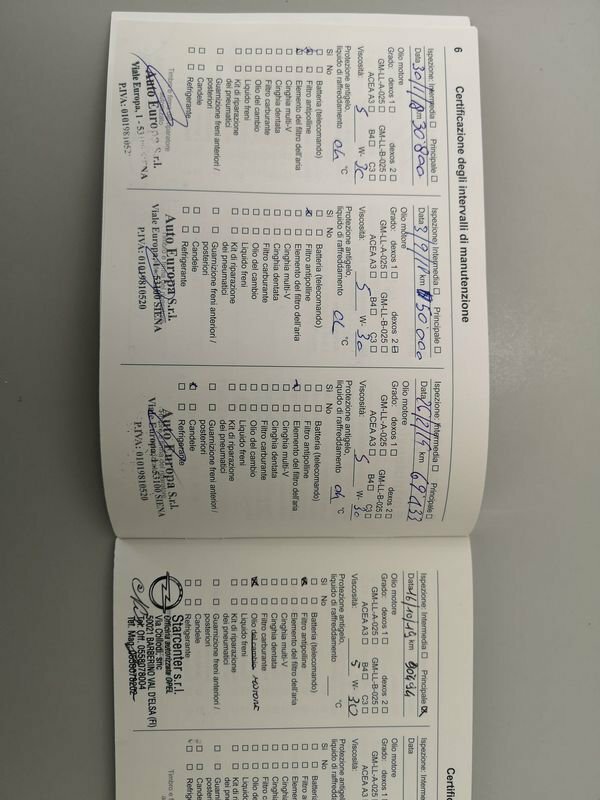 6
Certificazione degli intervalli di manutenzione
Ispezione: Intermedia □ Principale □
Data 30/1/18 km 30'800
Olio motore
Grado: dexos 1 □ dexos 2 □
GM-LL-A-025 □ GM-LL-B-025 □
ACEA A3 □ B4 □ C3 □
Viscosità: 5 W- 30
Protezione antigelo,
liquido di raffreddamento ok °C
Sì No
□ □ Batteria (telecomando)
□ Filtro antipolline
□ Elemento del filtro dell'aria
□ □ Cinghia multi-V
□ □ Cinghia dentata
□ □ Filtro carburante
□ □ Olio del cambio
□ □ Liquido freni
□ □ Kit di riparazione
dei pneumatici
□ □ Guarnizione freni anteriori /
posteriori
□ □ Candele
□ □ Refrigerante
Auto Europa S.r.l.
Viale Europa, 1 - 53 SIENA
P.IVA: 010398105
Ispezione: Intermedia □ Principale □
Data km 50'000
Olio motore
Grado: dexos 1 □ dexos 2
GM-LL-A-025 □ GM-LL-B-025 □
ACEA A3 □ B4 □ C3 □
Viscosità: 5 W- 30
Protezione antigelo,
liquido di raffreddamento ok °C
Sì No
□ □ Batteria (telecomando)
□ Filtro antipolline
□ □ Elemento del filtro dell'aria
□ □ Cinghia multi-V
□ □ Cinghia dentata
□ □ Filtro carburante
□ □ Olio del cambio
□ □ Liquido freni
□ □ Kit di riparazione
dei pneumatici
□ □ Guarnizione freni anteriori /
posteriori
□ □ Candele
□ □ Refrigerante
Auto Europa S.r.l.
Viale Europa, 1 - 53100 SIENA
P.IVA: 01039810520
Ispezione: Intermedia □ Principale □
Data km 69433
Olio motore
Grado: dexos 1 □ dexos 2 □
GM-LL-A-025 □ GM-LL-B-025 □
ACEA A3 □ B4 □ C3 □
Viscosità: 5 W- 30
Protezione antigelo,
liquido di raffreddamento ok °C
Sì No
□ □ Batteria (telecomando)
□ □ Filtro antipolline
□ Elemento del filtro dell'aria
□ □ Cinghia multi-V
□ □ Cinghia dentata
□ □ Filtro carburante
□ □ Olio del cambio
□ □ Liquido freni
□ □ Kit di riparazione
dei pneumatici
□ □ Guarnizione freni anteriori /
posteriori
□ Candele
□ □ Refrigerante
Auto Europa S.r.l.
Viale Europa, 1 - 53100 SIENA
P.IVA: 01039810520
Ispezione: Intermedia □ Principale
Data 16/10/19 km
Olio motore
Grado: dexos 1 □ dexos 2 □
GM-LL-A-025 □ GM-LL-B-025 □
ACEA A3 □ B4 □ C3 □
Viscosità: 5 W- 30
Protezione antigelo,
liquido di raffreddamento °C
Sì No
□ □ Batteria (telecomando)
□ Filtro antipolline
□ □ Elemento del filtro dell'aria
□ □ Cinghia multi-V
□ □ Cinghia dentata
□ □ Filtro carburante
□ Olio del cambio MOTORE
□ □ Liquido freni
□ □ Kit di riparazione
dei pneumatici
□ □ Guarnizione freni anteriori /
posteriori
□ □ Candele
□ □ Refrigerante
Starcenter s.r.l.
Officina autorizzata OPEL
50021 BARBERINO VAL D'ELSA (FI)
Tel. Off. 0558078004
Certif
Ispezione: Interm
Data
Olio motore
Grado: dexos 1
GM-LL-A-025
ACEA A3
Viscosità:
Protezione antigelo,
liquido di raffreddam
Sì No
□ □ Batteria
□ □ Filtro ant
□ □ Element
□ □ Cinghia
□ □ Cinghia
□ □ Filtro ca
□ □ Olio del
□ □ Liquido
□ □ Kit di rip
dei pneu
□ □ Guarniz
posterio
□ □ Candele
□ □ Refriger
Timbro e f